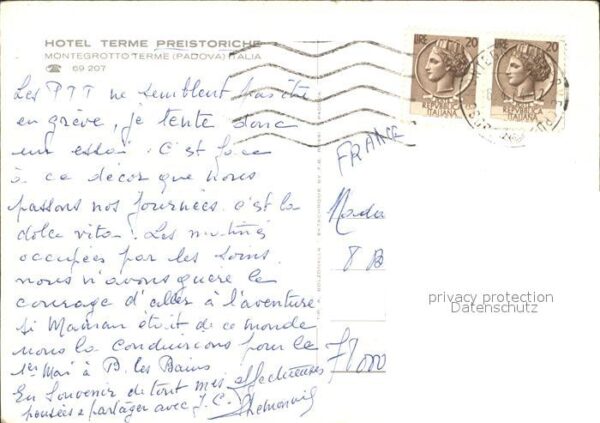 HOTEL TERME PREISTORICHE
MONTEGROTTO TERME (PADOVA) ITALIA
☎ 69 207
Les PTT ne semblent pas être
en grève, je tente donc
un essai. C'est face
à ce décor que nous
passons nos journées c'est la
dolce vita. Les matinées
occupées par les soins
nous n'avons guère le
courage d'aller à l'aventure
Si Maman était de ce monde
nous la conduirions pour le
1er Mai à B. les Bains
En souvenir de tout mes affectueuses
pensées à partager avec J.C.
LIRE 20
REPVBBLICA
ITALIANA
LIRE 20
REPVBBLICA
ITALIANA
FRANCE
Mada
8 B
71000
privacy protection
Datenschutz